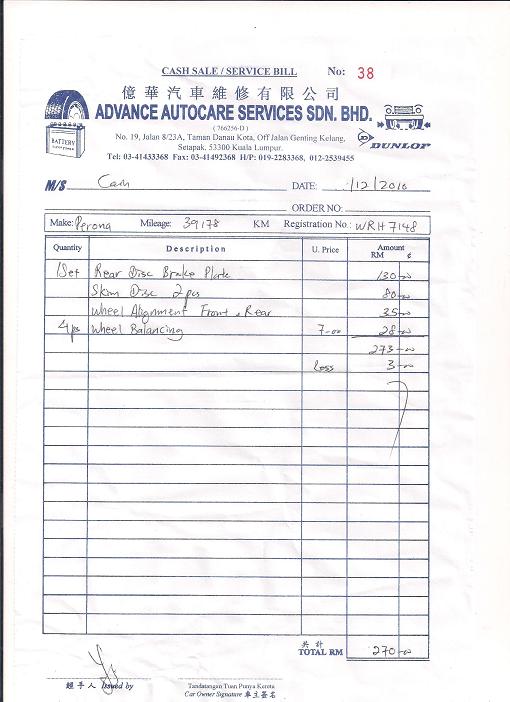 CASH SALE / SERVICE BILL No: 38
億華汽車維修有限公司
ADVANCE AUTOCARE SERVICES SDN. BHD.
( 766256-D )
No. 19, Jalan 8/23A, Taman Danau Kota, Off Jalan Genting Kelang,
Setapak, 53300 Kuala Lumpur.
Tel: 03-41433368 Fax: 03-41492368 H/P: 019-2283368, 012-2539455
BATTERY
DUNLOP
M/S Cash DATE: /12/2010
ORDER NO:
Make: Perona Mileage: 39178 KM Registration No.: WRH 7148
Quantity Description U. Price Amount
RM ¢
1Set Rear Disc Brake Plate 130-00
Skim Disc 2pcs 80-00
Wheel Alignment Front, Rear 35-00
4ps Wheel Balancing 7-00 28-00
273-00
Less 3-00
共計
TOTAL RM 270-00
經手人 Issued by
Tandatangan Tuan Punya Kereta
Car Owner Signature 車主簽名